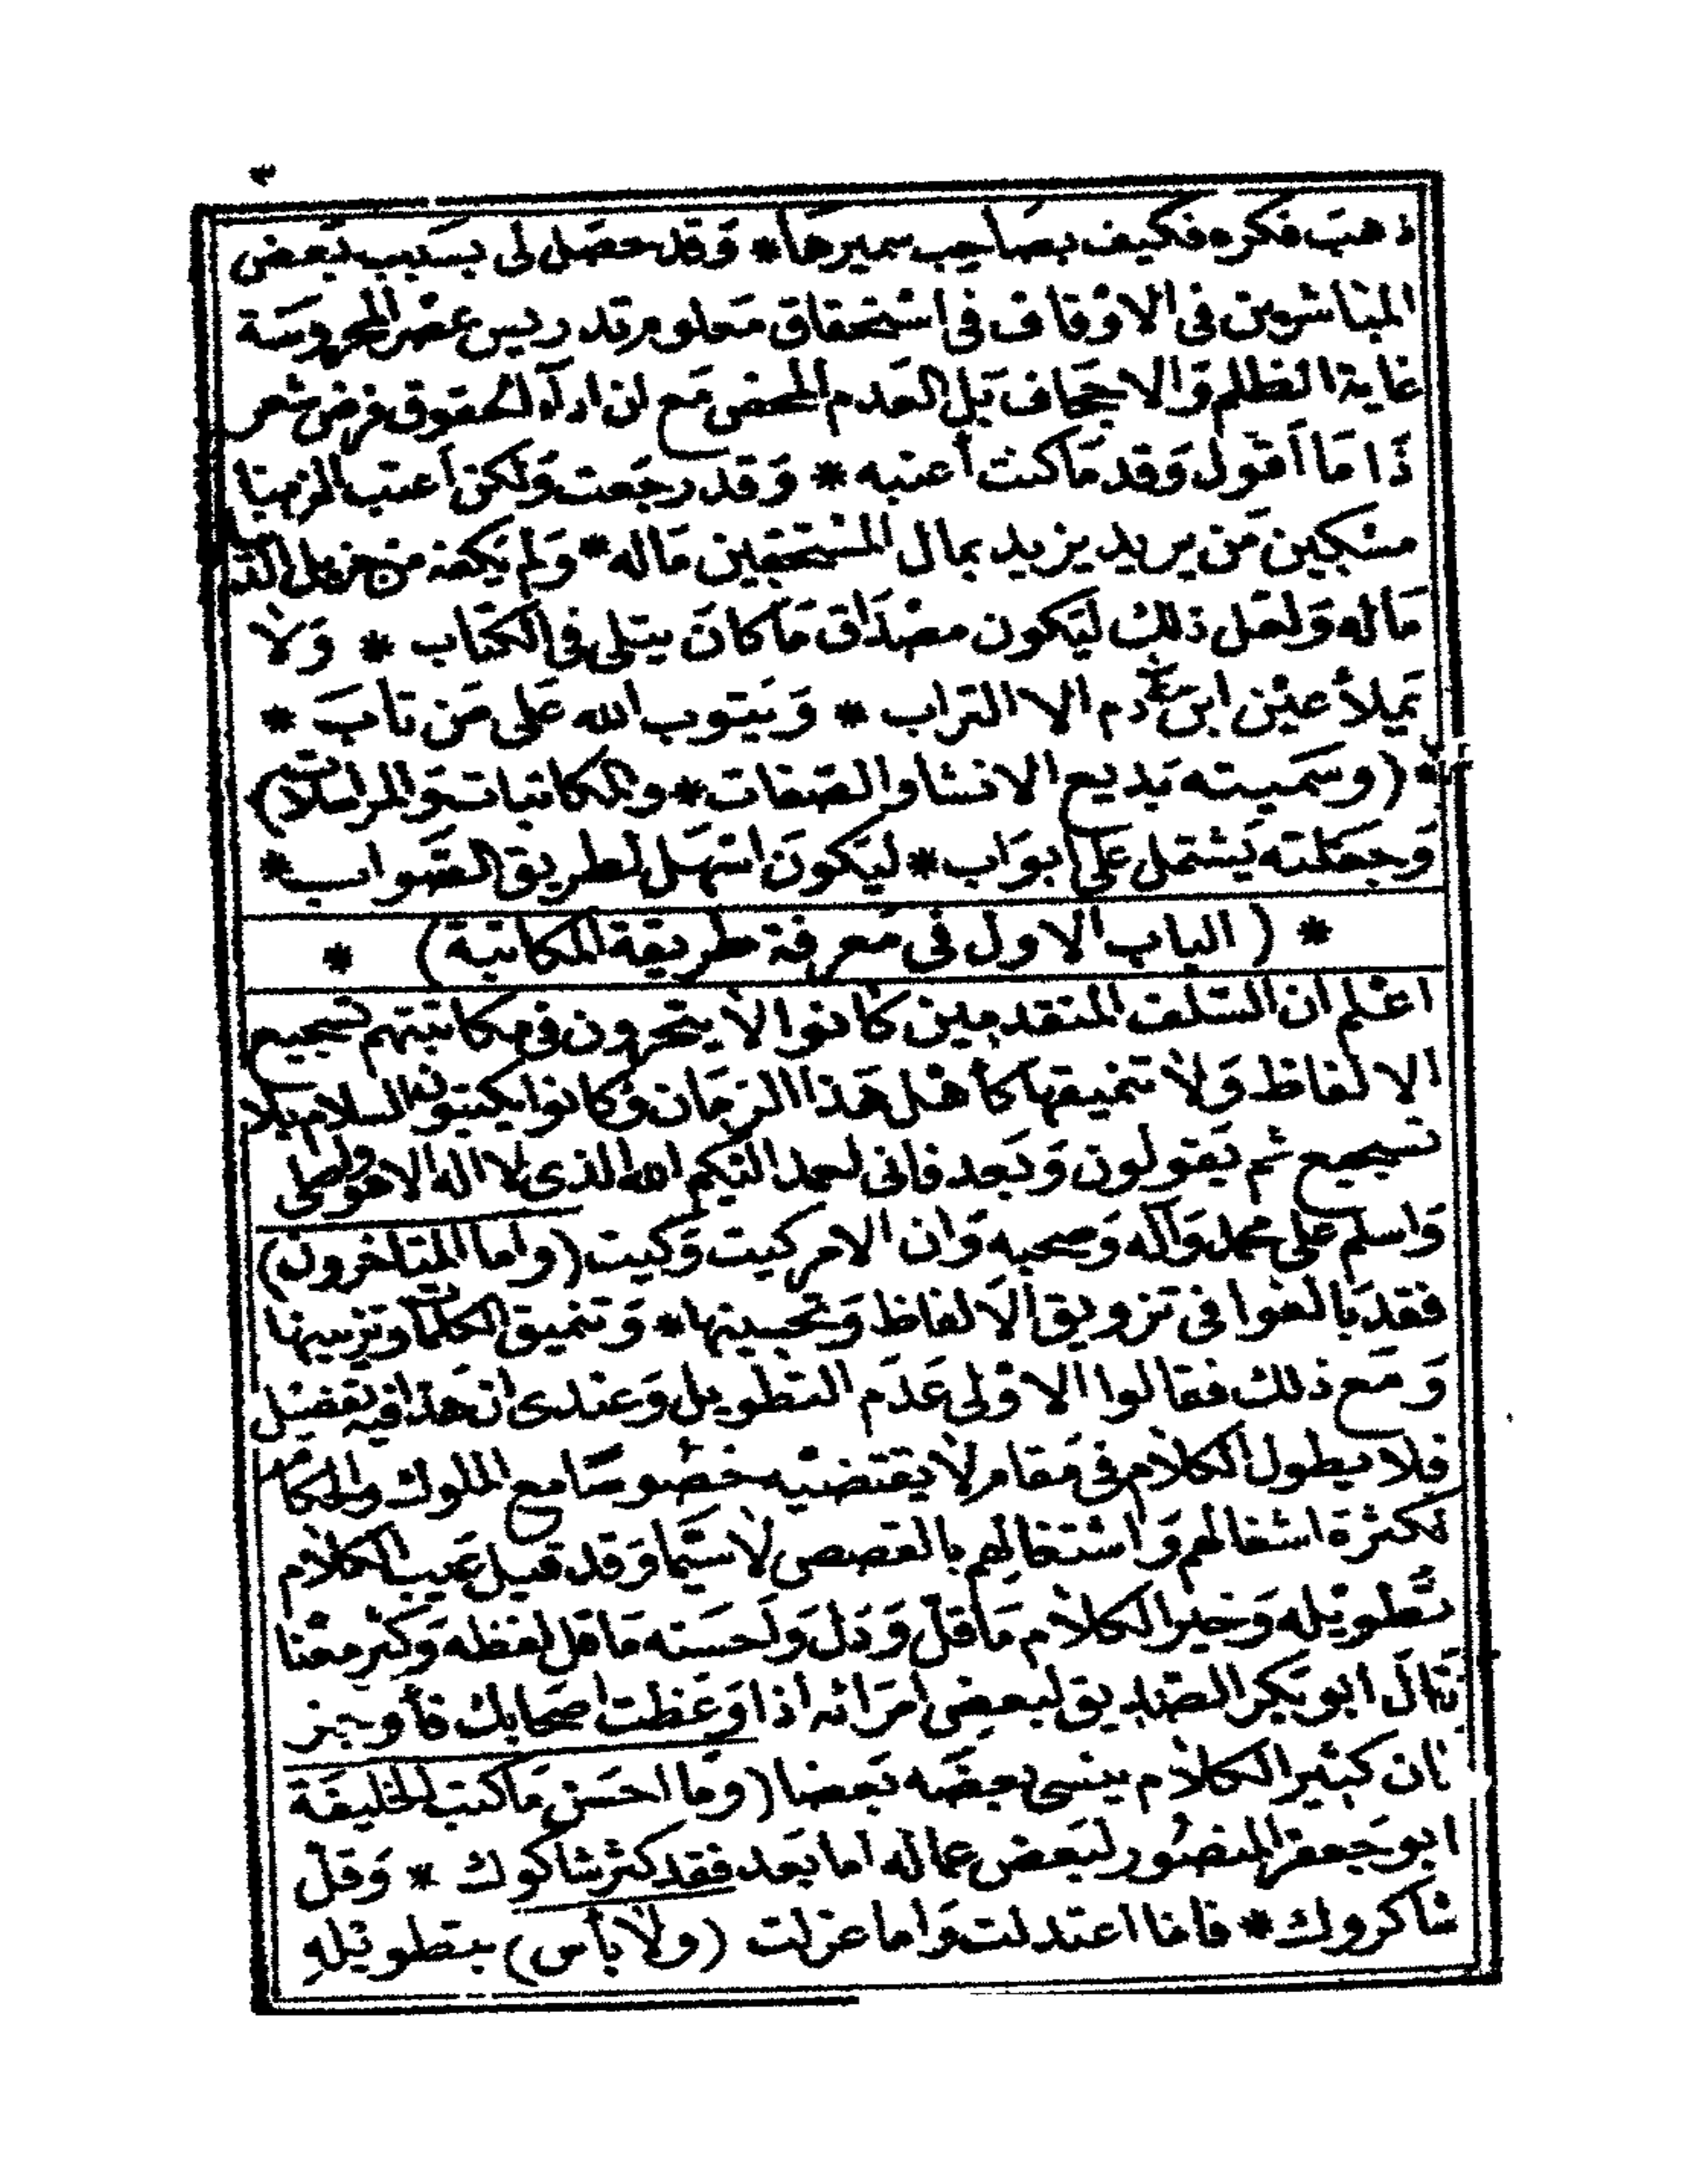 ٣
ذهب فكره فكيف بصاحب سميرها * وقد حصل لى بسبب بعض
المباشرين فى الاوقاف فى استحقاق معلوم تدريس عصر المحروسة
غاية الظلم والاجحاف بل العدم المحض مع ان ادآء الحقوق فرض شعر
ذا ما أقول وقد ما كنت أعتبه * وقد رجعت ولكن أعتب الزمنا
مسكين من يريد يزيد بمال المستحقين ماله * ولم يكفه من جزيل
ماله ولعل ذلك ليكون مصداق ما كان يتلى فى الكتاب * ولا
يملأ عين ابن آدم الا التراب * ويتوب الله على من تاب *
* (وسميته بديع الانشا والصفات * والمكاتبات والمراسلات)
وجعلته يشتمل على ابواب * ليكون اسهل لطريق الصواب *
* (الباب الاول فى معرفة طريقة المكاتبة) *
اعلم ان السلف المتقدمين كانوا لا يتحرون فى مكاتبتهم تسجيع
الالفاظ ولا تنميقها كأهل هذا الزمان وكانوا يكتبون السلام بلا
تسجيع ثم يقولون وبعد فانى احمد اليكم الله الذى لا اله الا هو واصلى
واسلم على محمد وآله وصحبه وان الامر كيت وكيت (واما المتاخرون)
فقد بالغوا فى تزويق الالفاظ وتحسينها * وتنميق الكلمات وتزيينها
ومع ذلك فقالوا الاولى عدم التطويل وعندى ان هذا فيه تفصيل
فلا يطول الكلام فى مقام لا يقتضيه خصوصا مع الملوك والحكام
لكثرة اشغالهم واشتغالهم بالقصص لا سيما وقد قيل عيب الكلام
تطويله وخير الكلام ما قل ودل واحسنه ما قل لفظه وكثر معنا
قال ابو بكر الصديق لبعض امرائه اذا وعظت اصحابك فأوجز
فان كثير الكلام ينسى بعضه بعضا (وما احسن ما كتب الخليفة
ابو جعفر المنصور لبعض عماله اما بعد فقد كثر شاكوك * وقل
شاكروك * فاما اعتدلت واما عزلت (ولا بأس) بتطويله